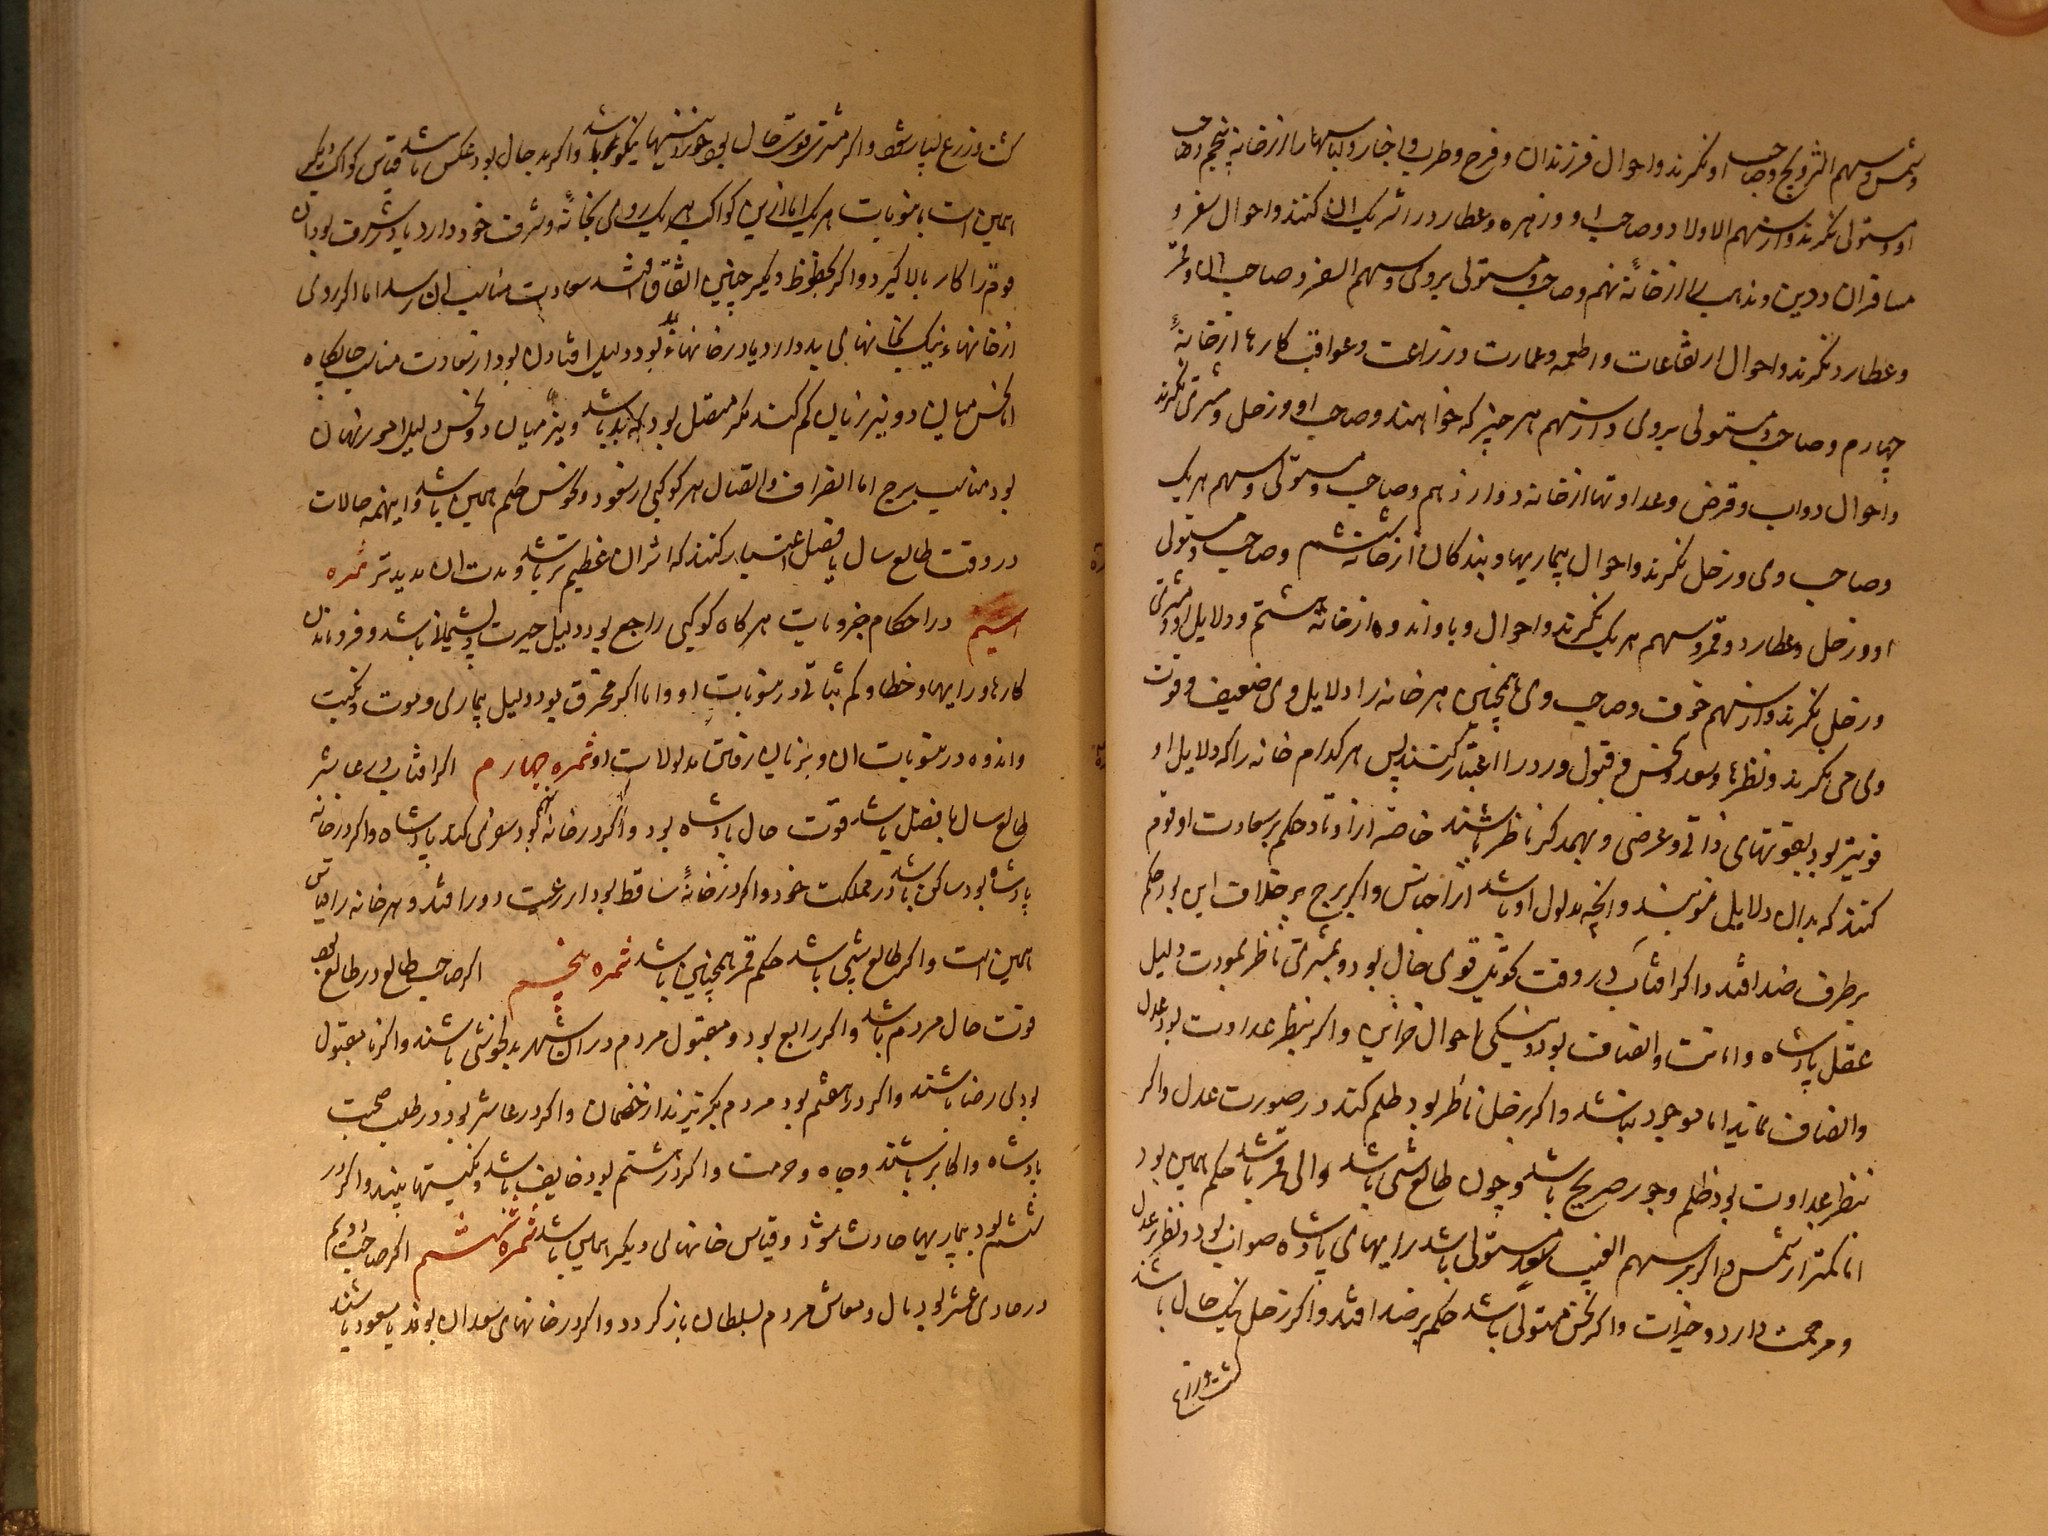 و شمس و سهم التزویج و صاحب او نکرند و احوال فرزندان و فرح و طرب و اخبار و لباسها را از خانهٔ پنجم و صاحب
او و مستولی نکرند و از سهم الاولاد و صاحب او و زهره و عطارد را شریک آن کنند و احوال سفر و
مسافران و دین و مذهب را از خانهٔ نهم و صاحب و مستولی بروی و سهم السفر و صاحب آن و قمر
و عطارد نکرند و احوال ارتفاعات و اطعمه و عمارت و زراعت و عواقب کارها از خانهٔ
چهارم و صاحب و مستولی بروی و از سهم هر چیز که خواهند و صاحب او و زحل و مشتری نکرند
و احوال دواب و قرض و عداوتها از خانه دوازدهم و صاحب و مستولی و سهم هر یک
و صاحب وی و زحل نکرند و احوال بیماریها و بندکان از خانه ششم و صاحب و مستولی
او و زحل و عطارد و قمر و سهم هر یک نکرند و احوال وبا و اندوه از خانهٔ هشتم و دلایل او و مشتری
و زحل نکرند و از سهم خوف و صاحب وی همچنین هر خانه را دلایل وی ضعیف و قوت
وی می نکرند و نظرها و سعد و نحس و قبول و رد را اعتبار کنند پس هر کدام خانه را که دلایل او
قویتر بود بقوتهای ذاتی و عرضی و بهمدکر ناظر باشند خاصه از اوتاد حکم بر سعادت او قوم
کنند که بدان دلایل منوبند و آنچه مدلول او باشد از اجناس و اکر برج بر خلاف این بود حکم
بر طرف ضد افتد و اکر افتاب در وقت تحویل قوی حال بود و بمشتری ناظر بمودت دلیل
عقل پادشاه و امانت و انصاف بود و نیکی احوال خزاین و اکر بنظر عداوت بود عدل
و انصاف نماید اما موجود نباشد و اکر بزحل ناظر بود ظلم کند در صورت عدل و اکر
بنظر عداوت بود ظلم و جور صریح باشد و چون طالع شبی باشد والی قمر باشد حکم همین بود
اما کمتر از شمس و اکر بر سهم الغیب سعد مستولی باشد رایهای پادشاه صواب بود و نظر بعدل
و مرحمت دارد و خیرات و اکر نحس مستولی باشد حکم بر ضد افتد و اکر زحل نیک حال باشد
کشت و زرع
کشت و زرع بسیار شود و اکر مشتری قوت حال بود نیکو باشد و اکر بد حال بود عکس باشد قیاس کواکب دیکر
همین است با منوبات هر یک اما ازین کواکب هر یک روی بخانه و شرف خود دارد یا در شرف بود آن
قوم را کار بالا کیرد و اکر بحظوظ دیکر چنین اتفاق افتد سعادت مناسب آن رسد اما اکر روی
از خانهاء نیک بخانهای بد دارد یا در خانهاء بد بود دلیل افتادن بود از سعادت مناسب جایکاه
اما نحس میان دو نیر زیان کم کند مکر متصل بود که بد باشد و نیز میان دو نحس دلیل امور نهان
بود مناسب برج اما انصراف و اتصال هر کوکبی از سعود و نحوس حکم همین باشد و اینهمه حالات
در وقت طالع سال یا فصل اعتبار کنند که اثر آن عظیم تر باشد و مدت آن مدید تر ثمره
سیم در احکام جزویات هر کاه کوکبی راجع بود دلیل حیرت و پشیمانی باشد و فروماندن
کارها و رایهاء خطا و کم ثباتی در منوبات او و اما اکر محترق بود دلیل بیماری و موت و نکبت
و اندوه در منوبات آن و بزیان رفتن مدلولات او ثمره چهارم اکر افتاب در عاشر
طالع سال یا فصل باشد قوت حال پادشاه بود و اکر در خانه نهم بود سفری کند پادشاه و اکر در خانه
پادشاه بود ساکن باشد در مملکت خود و اکر در خانهٔ ساقط بود از رعیت دور افتد و هر خانه را قیاس
همین است و اکر طالع شبی باشد حکم قمر همچنین باشد ثمره پنجم اکر صاحب طالع در طالع بود
قوت حال مردم باشد و اکر رابع بود و مقبول مردم در آن شهر بدلخوشی باشند و اکر نامقبول
بود بی رضا باشند و اکر در هفتم بود مردم بکریزند از خصمان و اکر در عاشر بود در طلب صحبت
پادشاه و اکابر باشند و جاه و حرمت و اکر در هشتم بود خایف باشند و نکبتها بینند و اکر در
ششم بود بیماریها حادث شود و قیاس خانهای دیکر همین باشد ثمره ششم اکر صاحب دوم
در حادی عشر بود مال و معاش مردم بسلطان باز کردد و اکر در خانهای سعدان بوند یا مسعود باشند